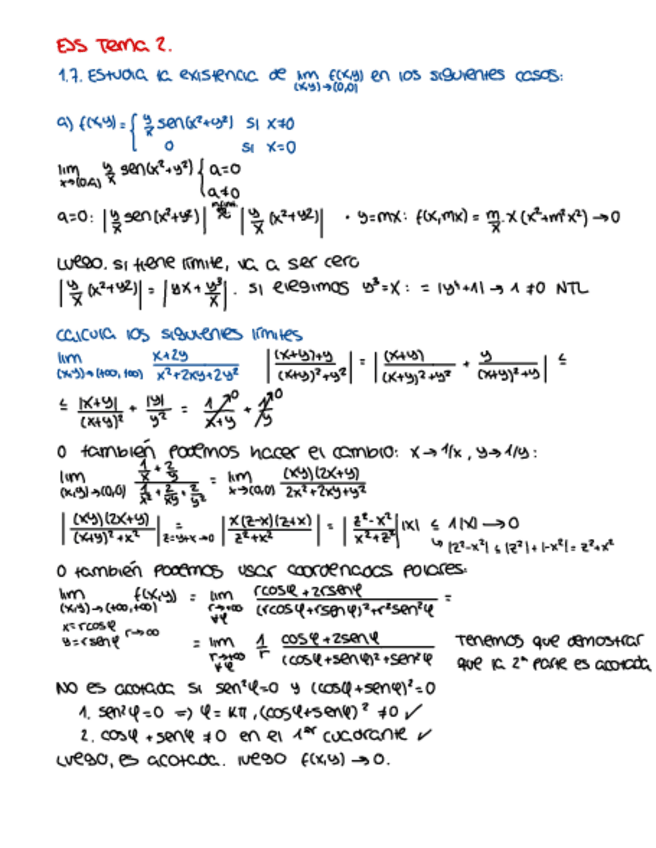 EJS Tema 2.
1.7. Estudia la existencia de lim f(x,y) en los siguientes casos:
(x,y)→(0,0)
a) f(x,y) = { y/x sen(x²+y²) si x≠0
0 si x=0
lim y/x sen(x²+y²) { a=0
x→(0,a) a≠0
a=0: |y/x sen(x²+y²)| |y/x (x²+y²)| · y=mx: f(x,mx) = m/x · x (x²+m²x²) → 0
Luego. si tiene límite, va a ser cero
|y/x (x²+y²)| = |yx + y³/x|. si elegimos y³=x: = |y⁴+1| → 1 ≠0 NTL
Calcula los siguientes límites
lim x+2y / x²+2xy+2y² |(x+y)+y / (x+y)²+y²| = |(x+y) / (x+y)²+y² + y / (x+y)²+y| ≤
(x,y)→(+∞,+∞)
≤ |x+y| / (x+y)² + |y| / y² = 1 / x+y →0 + 1/y →0
O también podemos hacer el cambio: x→1/x, y→1/y:
lim 1/x + 2/y / 1/x² + 2/xy + 2/y² = lim (xy)(2x+y) / 2x²+2xy+y²
(x,y)→(0,0) x→(0,0)
|(xy)(2x+y) / (x+y)²+x²| = |x(z-x)(z+x) / z²+x²| = |z²-x² / x²+z²| |x| ≤ 1|x| → 0
z=y+x→0 ↳ |z²-x²| ≤ |z²|+|-x²| = z²+x²
O también podemos usar coordenadas polares:
lim f(x,y) = lim rcosφ+2rsenφ / (rcosφ+rsenφ)²+r²sen²φ =
(x,y)→(+∞,+∞) r→+∞ ∀φ
x=rcosφ
y=rsenφ r→∞
= lim 1/r cosφ+2senφ / (cosφ+senφ)²+sen²φ Tenemos que demostrar
r→+∞ ∀φ que la 2ª parte es acotada
No es acotada si sen²φ=0 y (cosφ+senφ)²=0
1. sen²φ=0 => φ=kπ, (cosφ+senφ)² ≠0 ✓
2. cosφ+senφ ≠0 en el 1er cuadrante ✓
Luego, es acotada. luego f(x,y) → 0.